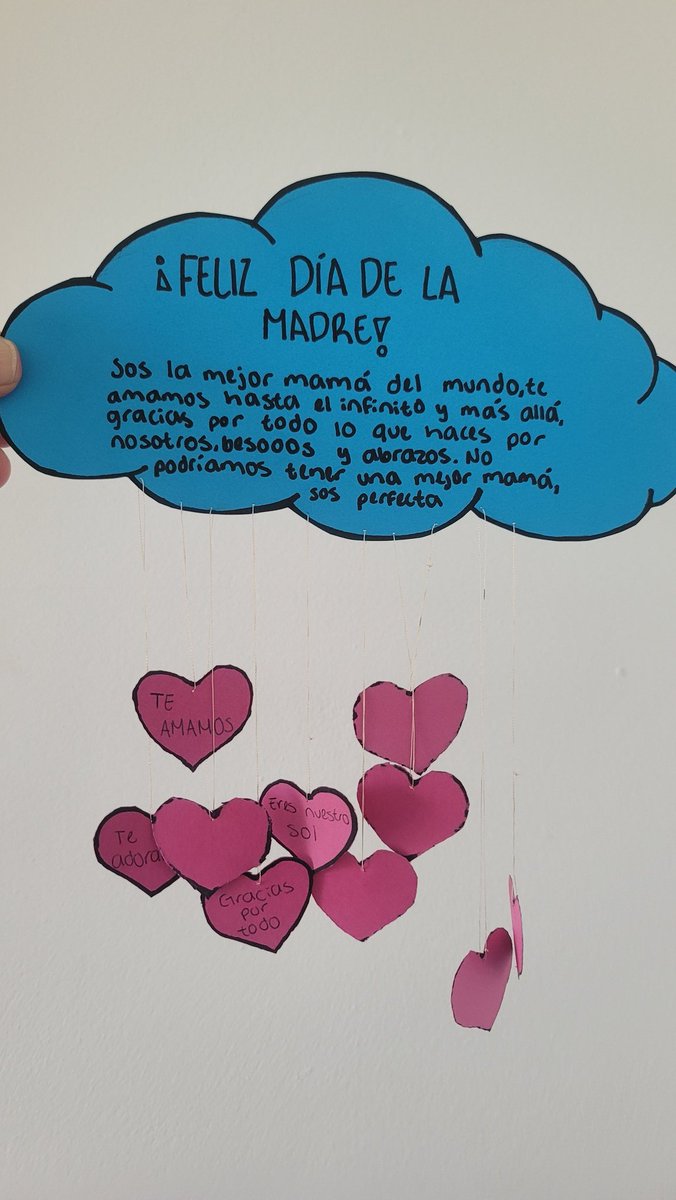 ¡FELIZ DÍA DE LA
MADRE!
Sos la mejor mamá del mundo,te
amamos hasta el infinito y más allá,
gracias por todo lo que haces por
nosotros.besooos y abrazos. No
podríamos tener una mejor mamá,
sos perfecta
TE
AMAMOS
Te
Eres nuestro
SOl
Gracias
por
todo